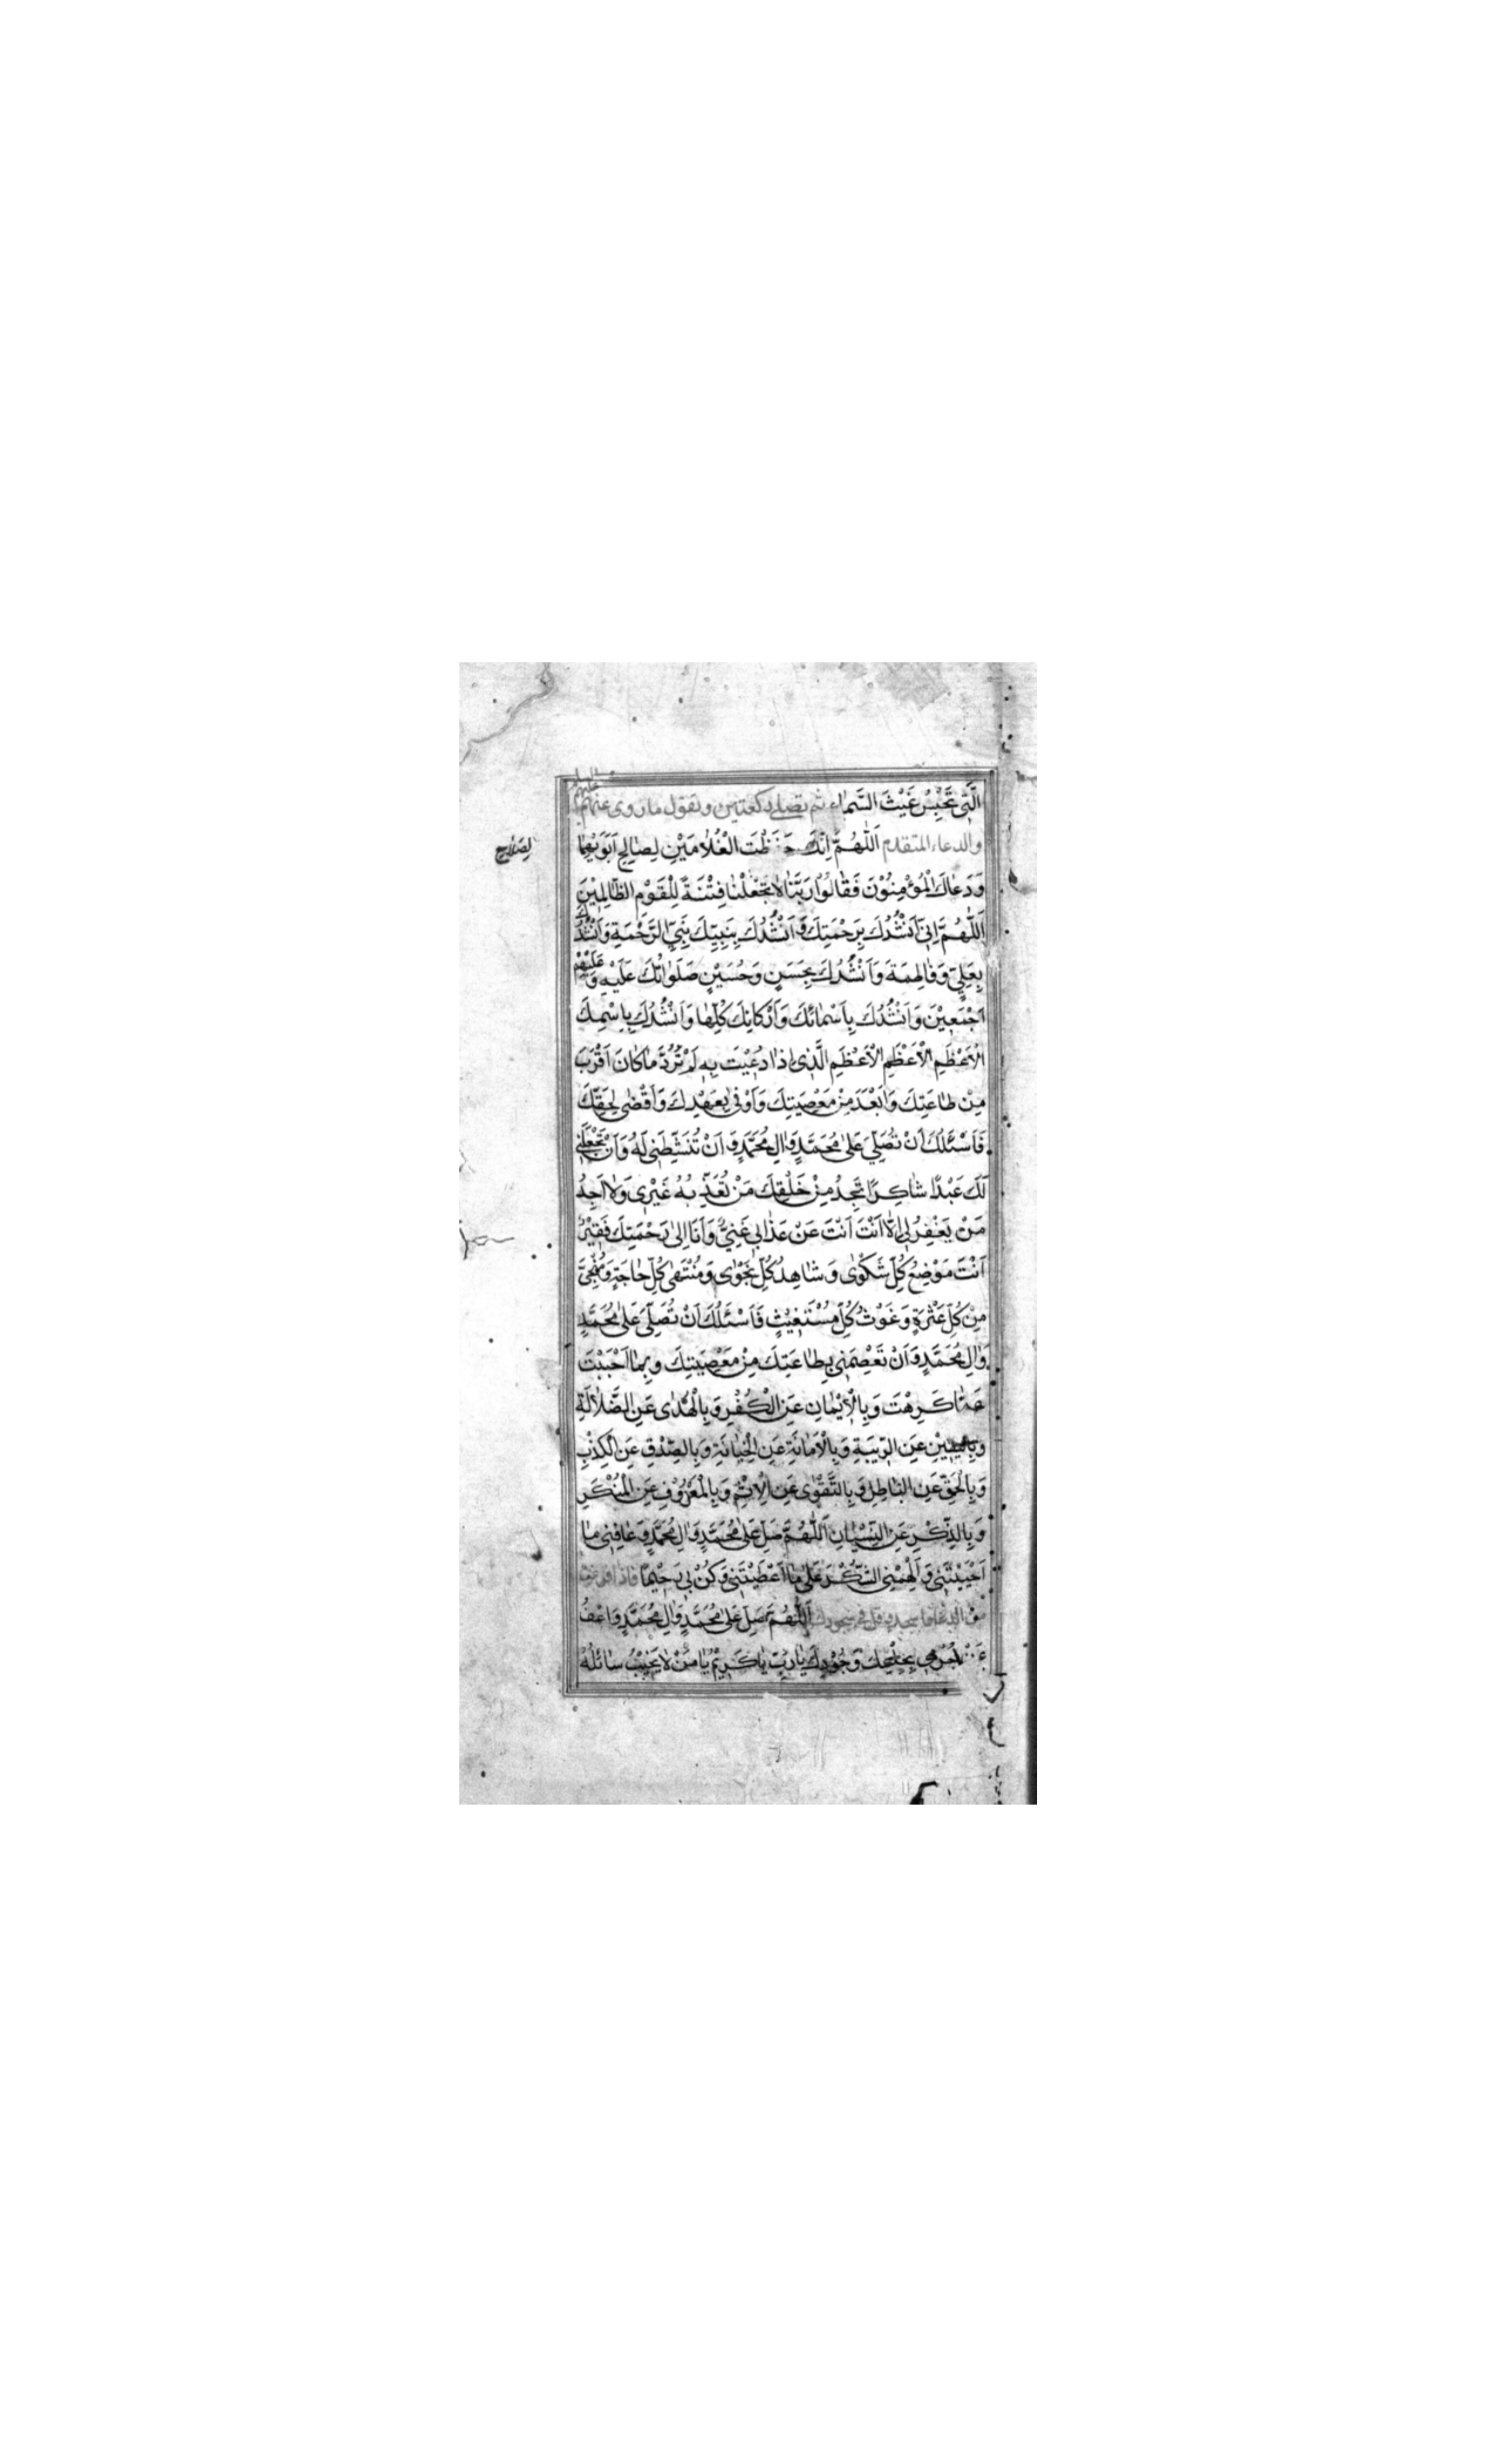 الَّتِي تَحْبِسُ غَيْثَ السَّمَاءِ ثم تصلي ركعتين وتقول ما روى عنهم عليهم
والدعاء المتقدم اَللّٰهُمَّ اِنَّكَ حَفِظْتَ الْغُلَامَيْنِ لِصَالِحِ اَبَوَيْهِمَا
لِصَلَاحِ
وَدَعَاكَ الْمُؤْمِنُوْنَ فَقَالُوْا رَبَّنَا لَا تَجْعَلْنَا فِتْنَةً لِلْقَوْمِ الظَّالِمِيْنَ
اَللّٰهُمَّ اِنِّي اَنْشُدُكَ بِرَحْمَتِكَ وَاَنْشُدُكَ بِنَبِيِّكَ نَبِيِّ الرَّحْمَةِ وَاَنْشُدُكَ
بِعَلِيٍّ وَفَاطِمَةَ وَاَنْشُدُكَ بِحَسَنٍ وَحُسَيْنٍ صَلَوَاتُكَ عَلَيْهِ وَعَلَيْهِمْ
اَجْمَعِيْنَ وَاَنْشُدُكَ بِاَسْمَائِكَ وَاَرْكَانِكَ كُلِّهَا وَاَنْشُدُكَ بِاسْمِكَ
الْاَعْظَمِ الْاَعْظَمِ الْاَعْظَمِ الَّذِي اِذَا دُعِيْتَ بِهِ لَمْ تَرُدَّ مَا كَانَ اَقْرَبَ
مِنْ طَاعَتِكَ وَاَبْعَدَ مِنْ مَعْصِيَتِكَ وَاَوْفٰى بِعَهْدِكَ وَاَقْضٰى لِحَقِّكَ
فَاَسْئَلُكَ اَنْ تُصَلِّيَ عَلٰى مُحَمَّدٍ وَاٰلِ مُحَمَّدٍ وَ اَنْ تُنَشِّطَنِي لَهُ وَاَنْ تَجْعَلَنِي
لَكَ عَبْدًا شَاكِرًا تَجِدُ مِنْ خَلْقِكَ مَنْ تُعَذِّبُهُ غَيْرِي وَلَا اَجِدُ
مَنْ يَغْفِرُ لِي اِلَّا اَنْتَ اَنْتَ عَنْ عَذَابِي غَنِيٌّ وَاَنَا اِلٰى رَحْمَتِكَ فَقِيْرٌ
اَنْتَ مَوْضِعُ كُلِّ شَكْوٰى وَ شَاهِدُ كُلِّ نَجْوٰى وَمُنْتَهٰى كُلِّ حَاجَةٍ وَمُنْجِي
مِنْ كُلِّ عَثْرَةٍ وَغَوْثُ كُلِّ مُسْتَغِيْثٍ فَاَسْئَلُكَ اَنْ تُصَلِّيَ عَلٰى مُحَمَّدٍ
وَاٰلِ مُحَمَّدٍ وَاَنْ تَعْصِمَنِي بِطَاعَتِكَ مِنْ مَعْصِيَتِكَ وَبِمَا اَحْبَبْتَ
عَمَّا كَرِهْتَ وَبِالْاِيْمَانِ عَنِ الْكُفْرِ وَبِالْهُدٰى عَنِ الضَّلَالَةِ
وَبِالْيَقِيْنِ عَنِ الرِّيْبَةِ وَبِالْاَمَانَةِ عَنِ الْخِيَانَةِ وَبِالصِّدْقِ عَنِ الْكِذْبِ
وَبِالْحَقِّ عَنِ الْبَاطِلِ وَبِالتَّقْوٰى عَنِ الْاِثْمِ وَبِالْمَعْرُوْفِ عَنِ الْمُنْكَرِ
وَبِالذِّكْرِ عَنِ النِّسْيَانِ اَللّٰهُمَّ صَلِّ عَلٰى مُحَمَّدٍ وَاٰلِ مُحَمَّدٍ وَعَافِنِي مَا
اَحْيَيْتَنِي وَاَلْهِمْنِي الشُّكْرَ عَلٰى مَا اَعْطَيْتَنِي وَكُنْ بِي رَحِيْمًا فاذا فرغت
من الدعاء فاسجد وقل في سجودك اَللّٰهُمَّ صَلِّ عَلٰى مُحَمَّدٍ وَاٰلِ مُحَمَّدٍ وَاعْفُ
عَنْ جُرْمِي بِحِلْمِكَ وَجُوْدِكَ يَا رَبِّ يَا كَرِيْمُ يَا مَنْ لَا يَخِيْبُ سَائِلُهُ